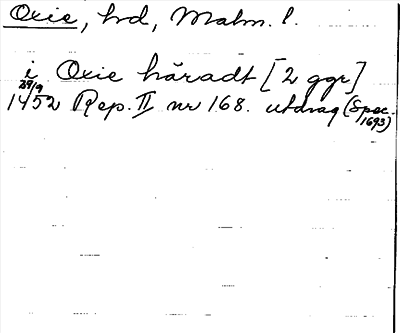 Oxie, hd, Malm. l.
i Oxie häradt [2 ggr]
29/9
1452 Rep. II nr 168. utdrag (Spec.
1693)